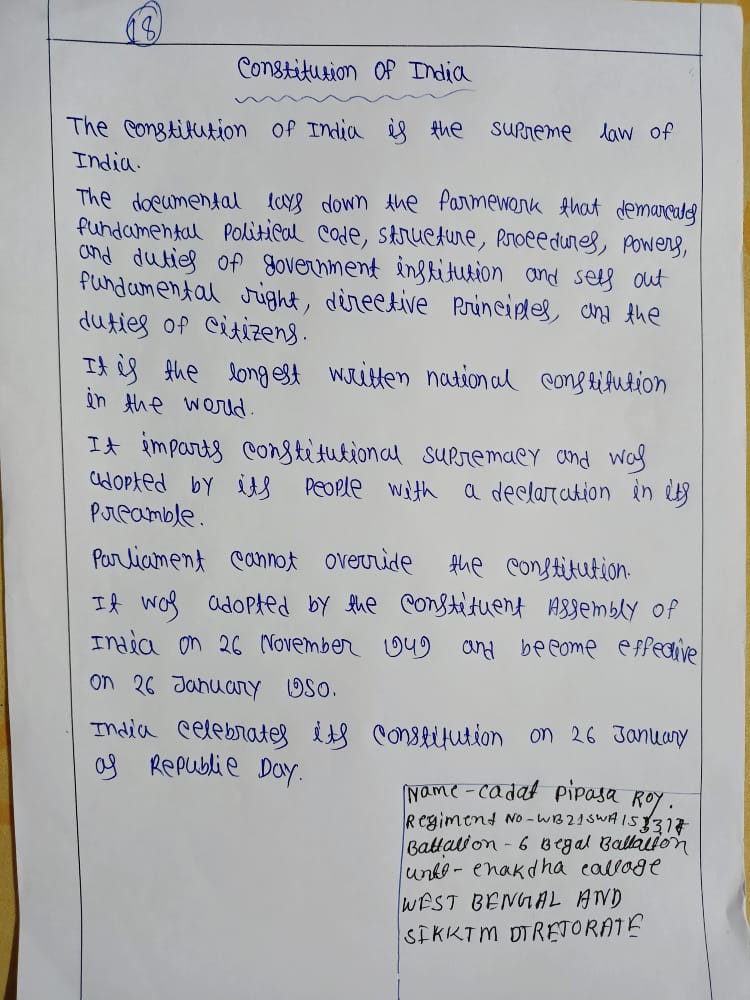 18
Constitution Of India
The constitution of India is the supreme law of
India.
The documental lays down the farmework that demarcates
fundamental political code, structure, procedures, powers,
and duties of government institution and sets out
fundamental right, directive principles, and the
duties of citizens.
It is the longest written national constitution
in the world.
It imparts constitutional supremacy and was
adopted by its people with a declaration in its
preamble.
Parliament cannot override the constitution.
It was adopted by the Constituent Assembly of
India on 26 November 1949 and become effective
on 26 January 1950.
India celebrates its constitution on 26 January
as Republic Day.
Name - cadat Pipasa Roy.
Regiment No - WB21SWA153317
Battalion - 6 Begal Battallon
unit - chakdha callage
WEST BENGAL AND
SIKKIM DIRETORATE